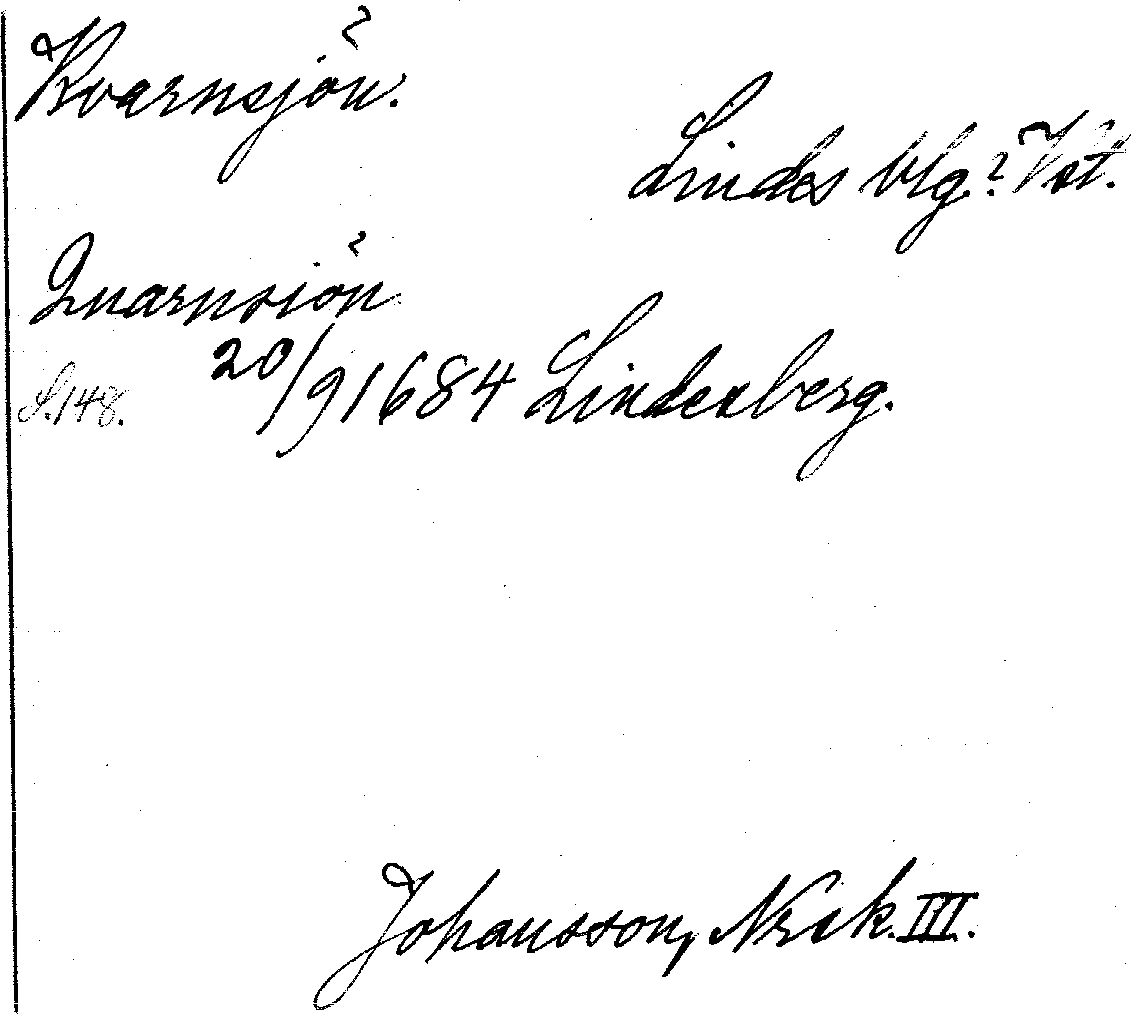 Kvarnsjön.
Lindes blg.? Vst.
Quarnsiön
S. 148. 20/9 1684 Lindesberg.
Johansson, Nrck. III.